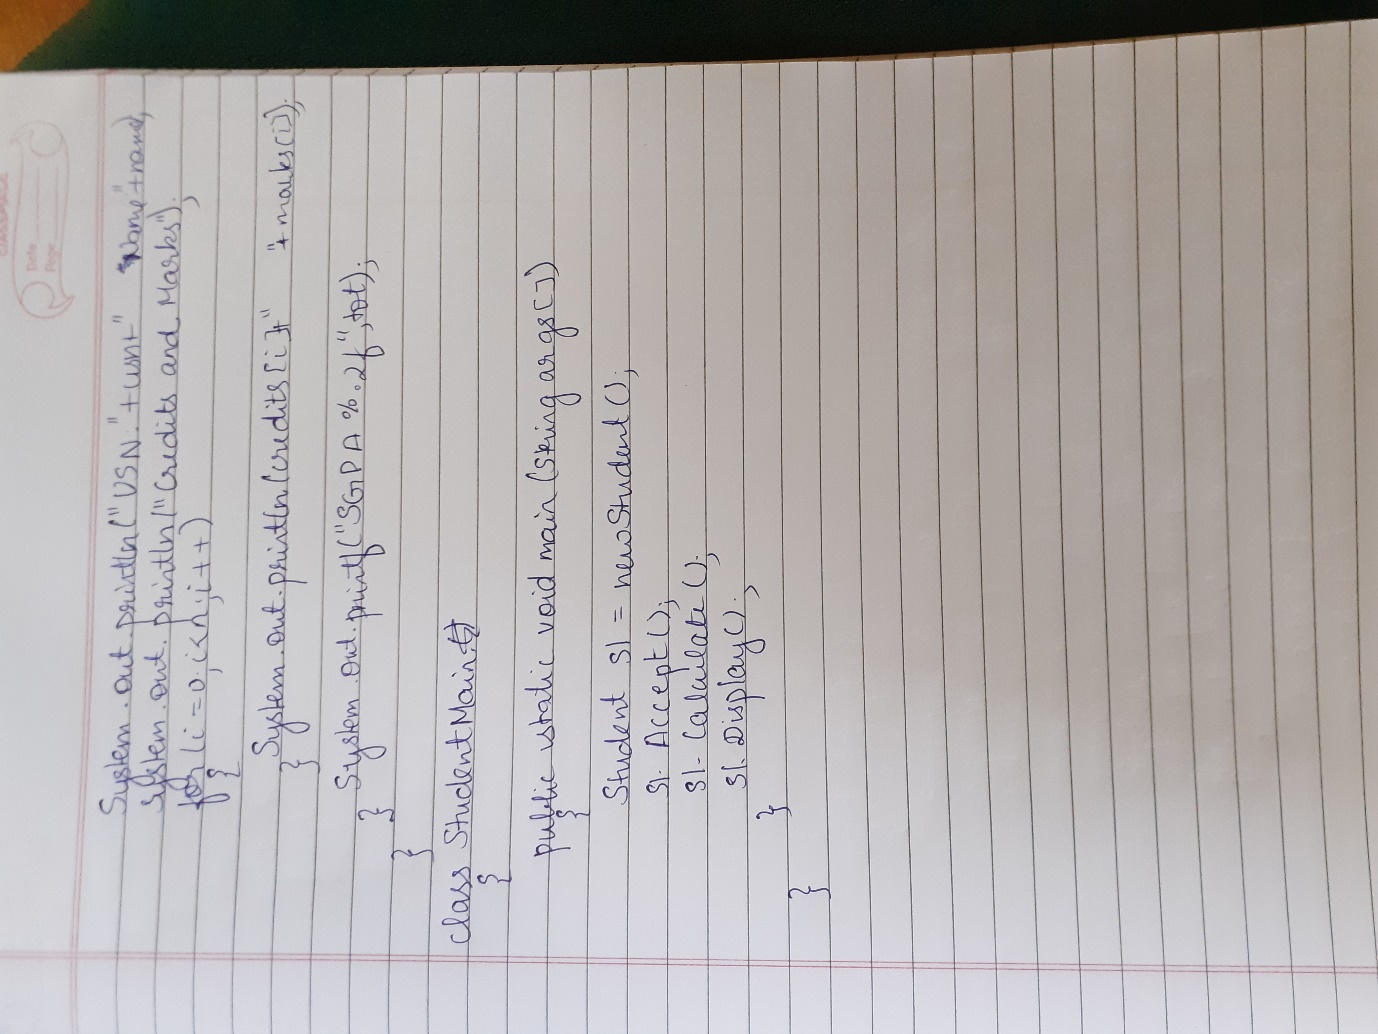 CLASSMATE
Date
Page
System.out.println("USN:"+usn+" Name"+name);
System.out.println("Credits and Marks");
for(i=0;i<n;i++)
{
System.out.println(credits[i]+" "+marks[i]);
}
System.out.printf("SGPA %.2f",tot);
}
}
class StudentMain
{
public static void main(String args[])
{
Student s1 = new Student();
s1.Accept();
s1.Calculate();
s1.Display();
}
}